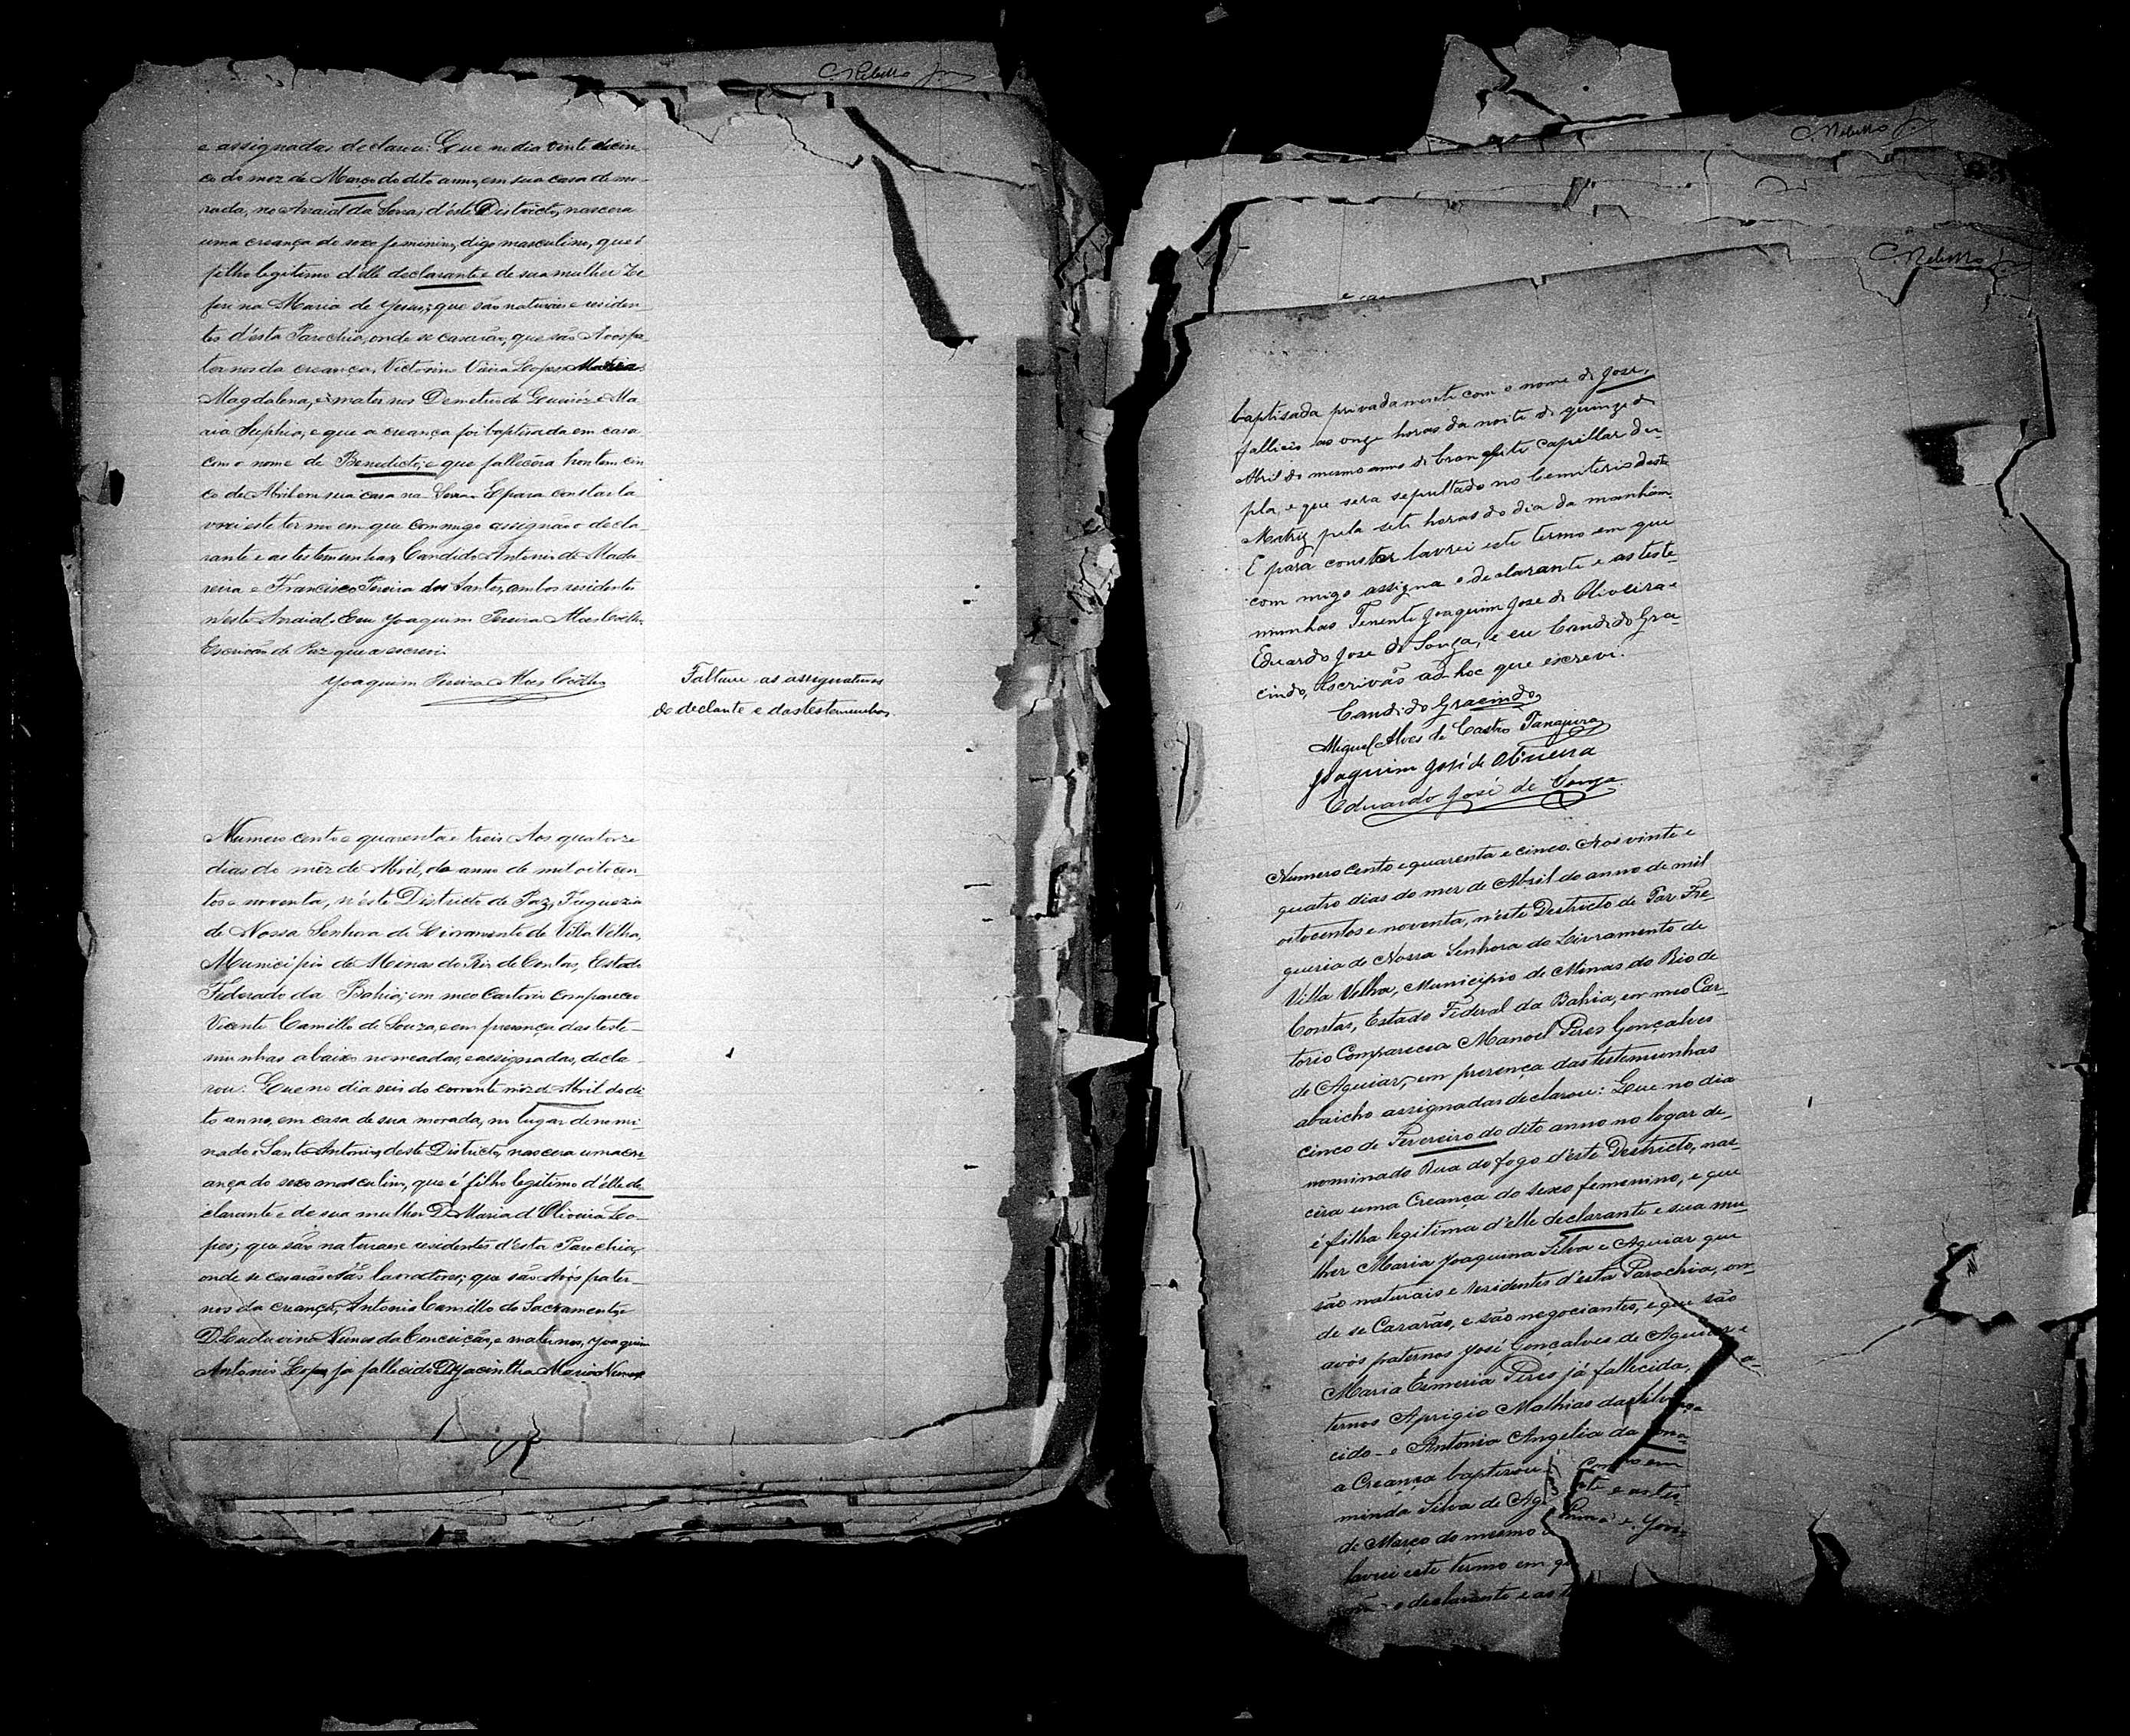 C Rebello Jor
e assignadas declarou: Que no dia vinte e cin-
co do mez de Março do dito anno, em sua casa de mo-
rada, no Arraial da Serra, d'este Districto, nascera
uma creança de sexo feminino, digo masculino, que é
filho legitimo d'elle declarante e de sua mulher Ze
ferina Maria de Jesus; que são naturais e residen-
tes d'esta Parochia, onde se casarão, que são Avós pa-
ternos da creança, Victorino Vieira Lopes Maria
Magdalena, e maternos Demetrio de Queiróz e Ma
ria Suphia, e que a creança foi baptisada em casa
com o nome de Benedicto; e que fallecêra hontem cin
co de Abril em sua casa na Serra. E para constar la
vrei este termo em que commigo assignão o decla-
rante e as testemunhas Candido Antonio de Mada
reira e Francisco Pereira dos Santos, ambos residentes
n'este Arraial. Eu Joaquim Pereira Mar Coelho
Escrivão de Paz que a escrevi.
Joaquim Pereira Mar Coelho
Faltam as assignaturas
do declante e das testemunhas.
Numero cento e quarenta e treis Aos quatorze
dias do mêz de Abril, do anno de mil oitocen-
tos e noventa, n'este Districto de Paz, Freguezia
de Nossa Senhora do Livramento de Villa Velha,
Municipio de Minas do Rio de Contas, Estado
Federado da Bahia; em meo Cartorio compareceo
Vicente Camillo de Souza, e em presença das teste-
munhas abaixo nomeadas, e assignadas, decla-
rou: Que no dia seis do corrente mêz de Abril do di
to anno, em casa de sua morada, no lugar denomi-
nado Santo Antonio, deste Districto, nascera uma cre
ança do sexo masculino, que é filho legitimo d'elle de
clarante e de sua mulher D. Maria d'Oliveira Lo-
pes; que são naturaes e residentes d'esta Parochia,
onde se casarão são lavradores; que são Avós pater-
nos da criança, Antonio Camillo do Sacramento, e
D. Ludovina Nunes da Conceição, e maternos, Joaquim
Antonio Lopes já fallecido D. Jacintha Maria Nunes
C Rebello Jor
C Rebello Jor
baptisada privadamente com o nome de José,
falleceo as onze horas da noite de quinze de
Abril do mesmo anno de bronchite capillar du-
pla, e que sera sepultado no Cemiterio desta
Matriz pela sete horas do dia da manhãm.
E para constar lavrei este termo em que
commigo assigna o declarante e as teste
munhas Tenente Joaquim José de Oliveira e
Eduardo José de Souza, e eu Candido Gra-
cindo, Escrivão ad-hoc que escrevi.
Candido Gracindo
Miguel Alves de Castro Tanajura
Joaquim José de Oliveira
Eduardo José de Souza
Numero cento e quarenta e cinco. Aos vinte e
quatro dias do mez de Abril do anno de mil
oitocentos e noventa, n'este Destricto de Paz Fre-
guezia de Nossa Senhora do Livramento de
Villa Velha, Municipio de Minas do Rio de
Contas, Estado Federal da Bahia, em meo Car-
torio Compareceu Manoel Peres Gonçalves
de Aguiar, em presença das testemunhas
abaicho assignadas declarou: Que no dia
cinco de Fevereiro do dito anno no logar de-
nominado Rua do fogo d'este Destricto, nas-
cêra uma Creança do sexo femenino, e que
é filha legitima d'elle declarante e sua mu-
lher Maria Joaquina Silva e Aguiar que
são naturais e residentes d'esta Parochia, on-
de se Casarão, e são negociantes, e que são
avós paternos José Gonçalves de Aguiar e
Maria Eumeria Peres já fallecida,
ternos Aprigio Mathias da Silva
cido e Antonia Angelia da
a Creança baptisou
minda Silva de Ag te e as tes-
de Março do mesmo
lavrei este termo em q
o declarante e as t